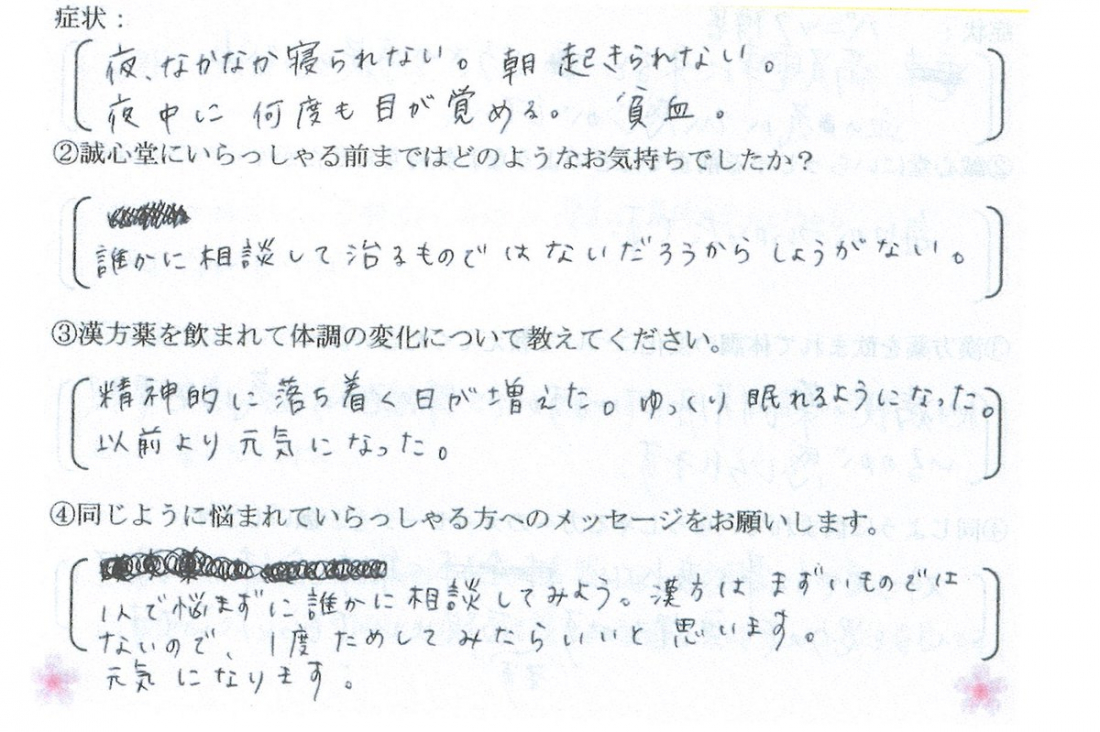 症状：
夜、なかなか寝られない。朝 起きられない。
夜中に 何度も目が覚める。 貧血。
②誠心堂にいらっしゃる前まではどのようなお気持ちでしたか？
誰かに相談して治るものではないだろうからしょうがない。
③漢方薬を飲まれて体調の変化について教えてください。
精神的に落ち着く日が増えた。ゆっくり眠れるようになった。
以前より元気になった。
④同じように悩まれていらっしゃる方へのメッセージをお願いします。
1人で悩まずに誰かに相談してみよう。漢方はまずいものでは
ないので、1度ためしてみたらいいと思います。
元気になります。